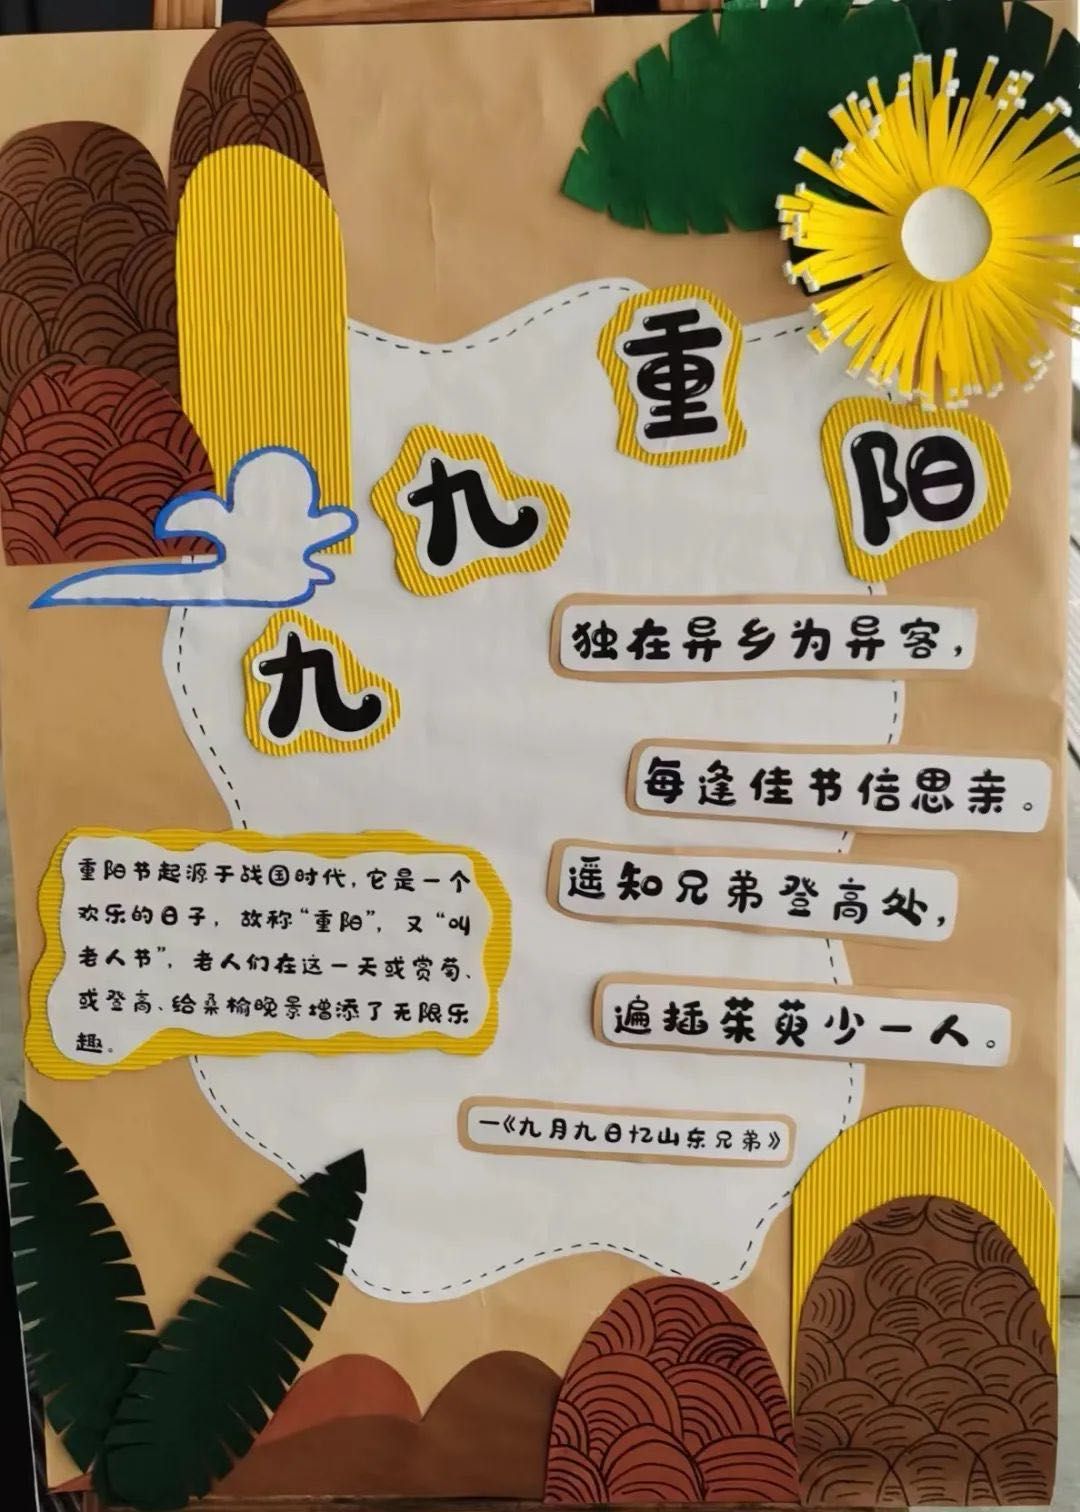 九九重阳
独在异乡为异客，
每逢佳节倍思亲。
遥知兄弟登高处，
遍插茱萸少一人。
一《九月九日忆山东兄弟》
重阳节起源于战国时代，它是一个
欢乐的日子，故称“重阳”，又“叫
老人节”，老人们在这一天或赏菊、
或登高、给桑榆晚景增添了无限乐
趣。